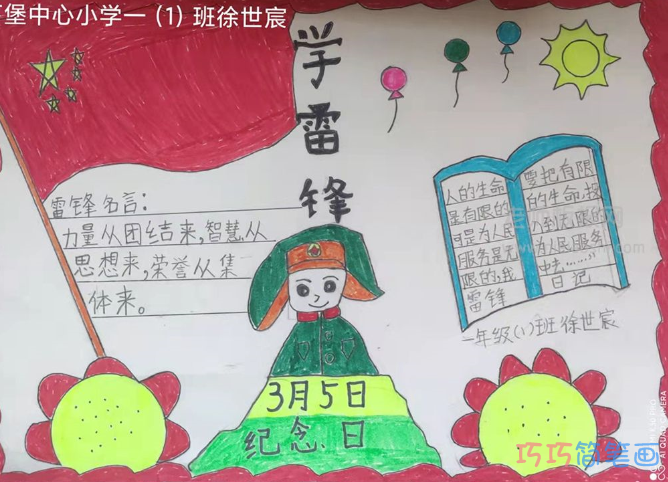 堡中心小学一（1）班徐世宸
学雷锋
雷锋名言：
力量从团结来，智慧从
思想来，荣誉从集
体来。
人的生命
是有限的
可是为人民
服务是无
限的，我
雷锋
要把有限
的生命，投
入到无限的
为人民服务
中去……
日记
一年级（1）班徐世宸
3月5日
纪念日
巧巧简笔画
AI QUAD CAMERA